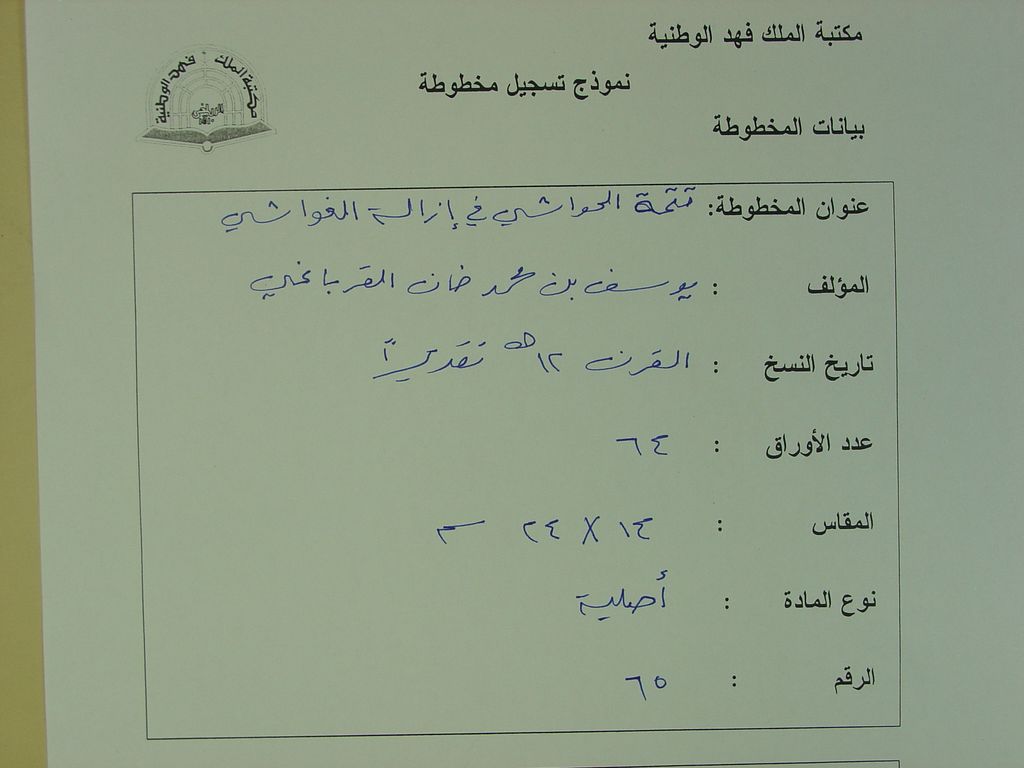 مكتبة الملك فهد الوطنية
نموذج تسجيل مخطوطة
بيانات المخطوطة
مكتبة الملك فهد الوطنية
عنوان المخطوطة: تتمة الحواشي في إزالة الغواشي
المؤلف : يوسف بن محمد خان القرباغي
تاريخ النسخ : القرن ١٢هـ تقديرًا
عدد الأوراق : ٦٤
المقاس : ١٤ X ٢٤ سم
نوع المادة : أصلية
الرقم : ٦٥